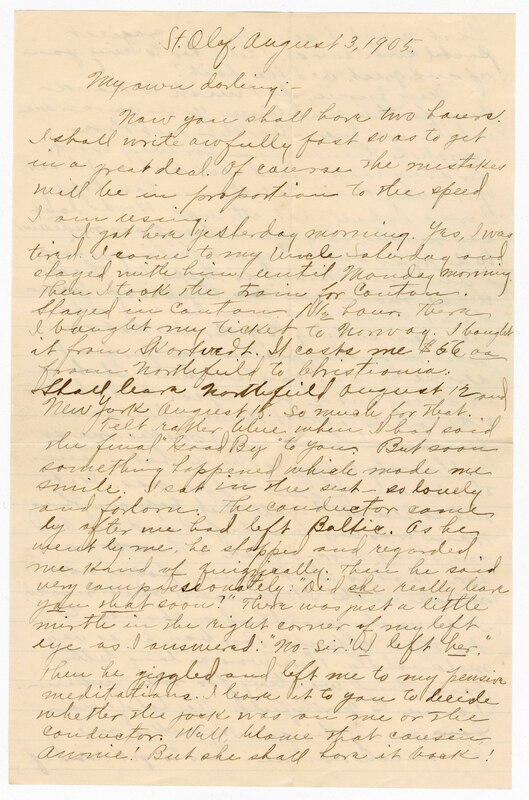 St. Olaf, August 3, 1905.
My own darling:-
Now you shall have two hours.
I shall write awfully fast so as to get
in a great deal. Of course the mistakes
will be in proportion to the speed
I am using.
I got here yesterday morning. Yes, I was
tired. I came to my Uncle Saturday and
stayed with him until Monday morning.
Then I took the train for Canton.
Stayed in Canton 1 1/2 hour. There
I bought my ticket to Norway. I bought
it from Skartvedt. It costs me $66 as
from Northfield to Christiania.
Shall leave Northfield August 12 and
New York August So much for that.
Felt rather blue when I had said
the final "Good By" to you. But soon
something happened which made me
smile. I sat in the seat - so lonely
and forlorn. The conductor came
by after we had left Baltic. As he
went by me, he stopped and regarded
me kind of quizzically. Then he said
very compassionately: "Did she really leave
you that soon?" There was just a little
mirth in the right corner of my left
eye as I answered: "No - Sir! I left her."
Then he giggled and left me to my pensive
meditations. I leave it to you to decide
whether the jock was on me or the
conductor. Well blame that cousin
Annie! But she shall have it back!